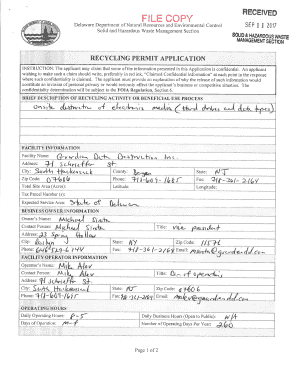 FILE COPY
RECEIVED
SEP 2017
SOLID & HAZARDOUS WASTE
MANAGEMENT SECTION
Delaware Department of Natural Resources and Environmental Control
Solid and Hazardous Waste Management Section
RECYCLING PERMIT APPLICATION
INSTRUCTION: The applicant may claim that some of the information presented in this Application is confidential. An applicant
wishing to make such a claim should write, preferably in red ink, "Claimed Confidential Information" at each point in the response
where such confidentiality is claimed. The applicant must provide an explanation of why the release of such information would
constitute an invasion of personal privacy or would seriously affect the applicant's business or competitive situation. The
confidentiality determination will be subject to the FOIA Regulation, Section 6.
BRIEF DESCRIPTION OF RECYCLING ACTIVITY OR BENEFICIAL USE PROCESS
onsite destruction of electronic media (Hard drives and data tapes)
FACILITY INFORMATION
Facility Name: Guardian Data Destruction Inc.
Address: 71 Schraeffer St
City: South Hackensack County: Bergen State: NJ
Zip Code: 07606 Phone: 718-609-1685 Fax: 718-361-2164
Total Site Area (Acres) Latitude Longitude:
Tax Parcel Number(s)
Expected Service Area: State of Delaware
BUSINESS OWNER INFORMATION
Owner's Name: Michael
Contact Person: Michael Title: vice president
Address: 23 Spring Hollow
City: Roslyn State: NY Zip Code: 11576
Phone: Fax: 718-361-2164 Email:
FACILITY OPERATOR INFORMATION
Operator's Name: Mike Alev
Contact Person: Mike Alev Title: Dir. of operations
Address: 71 Schraeffer St
City: South Hackensack State: NJ Zip Code: 07606
Phone: 718-609-1685 Fax: 718-361-2164 Email:
OPERATING HOURS
Daily Operating Hours: 8-5 Daily Business Hours (Open to Public): N/A
Days of Operation: M-F Number of Operating Days Per Year: 260
Page 1 of 2